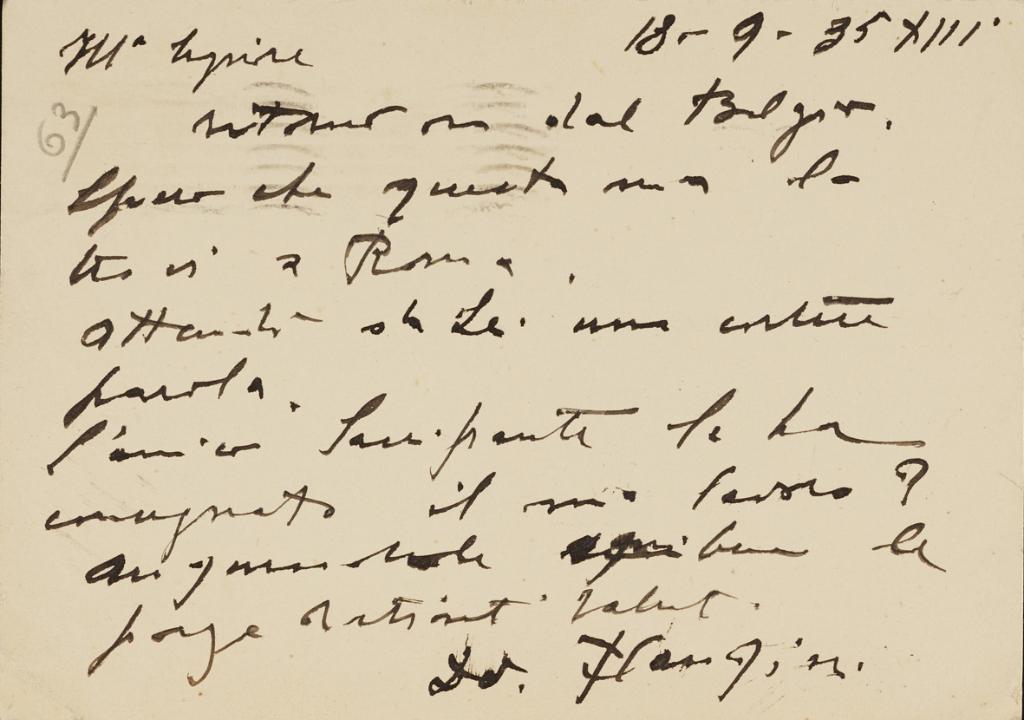 Ill.ᵃ Signora 18-9-35 XIII.
ritorno ora dal Belgio.
Spero che questa mia la
trovi a Roma.
attendo da Lei una cortese
parola.
l'amico Sacripante le ha
consegnato il mio lavoro?
Augurandole ogni bene le
porgo distinti saluti.
Do.
63/